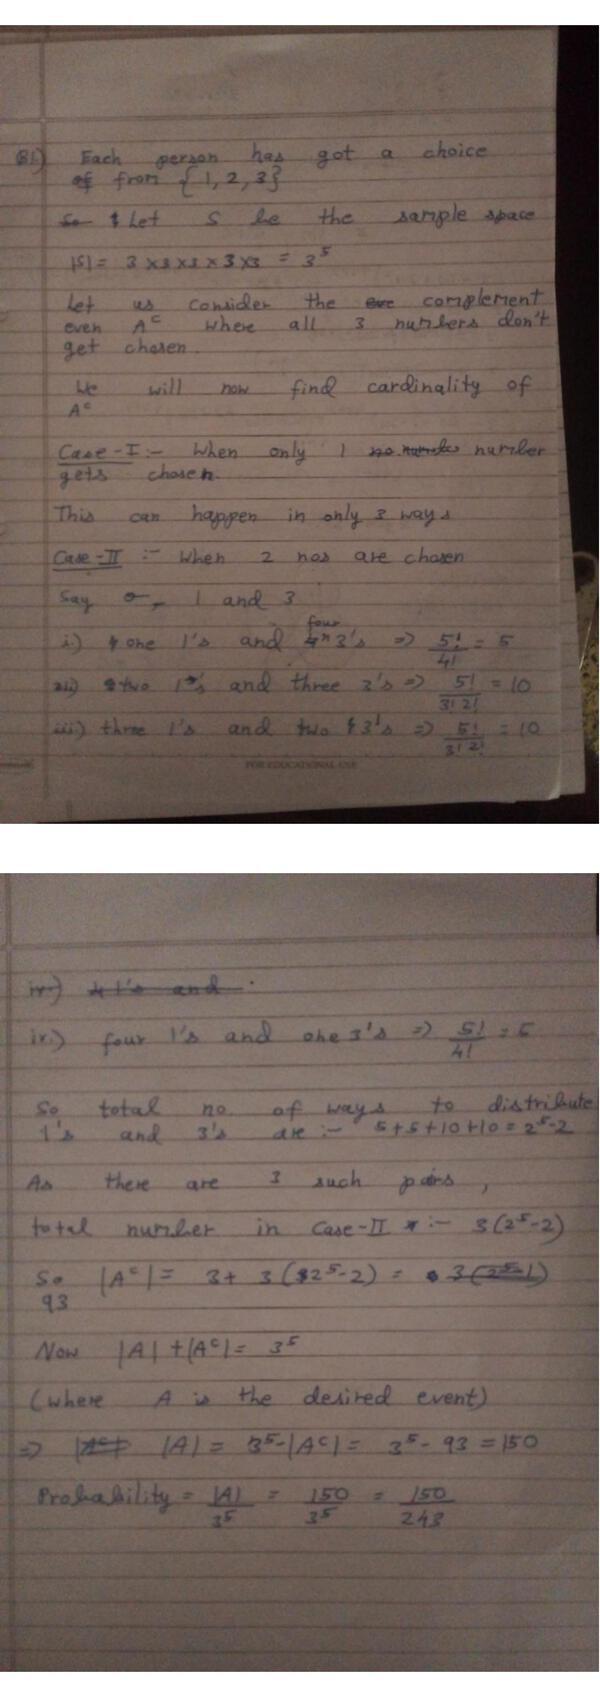 Q1.) Each person has got a choice
of from {1, 2, 3}
So Let S be the sample space
|S| = 3 x 3 x 3 x 3 x 3 = 3⁵
Let us consider the eve complement
even Aᶜ where all 3 numbers don't
get chosen.
We will now find cardinality of
Aᶜ
Case-I :- When only 1 no. number
gets chosen.
This can happen in only 3 ways
Case-II :- When 2 nos are chosen
Say 1 and 3
four
i.) one 1's and 3's => 5!/4! = 5
ii.) two 1's and three 3's => 5!/3!2! = 10
iii.) three 1's and two 3's => 5!/3!2! = 10
FOR EDUCATIONAL USE
iv.) 4 1's and
iv.) four 1's and one 3's => 5!/4! = 5
So total no of ways to distribute
1's and 3's are :- 5+5+10+10 = 2⁵-2
As there are 3 such pairs,
total number in Case-II :- 3(2⁵-2)
So |Aᶜ| = 3 + 3(2⁵-2) = 3(2⁵-1)
93
Now |A| + |Aᶜ| = 3⁵
(where A is the desired event)
=> |Aᶜ| |A| = 3⁵-|Aᶜ| = 3⁵ - 93 = 150
Probability = |A|/3⁵ = 150/3⁵ = 150/243